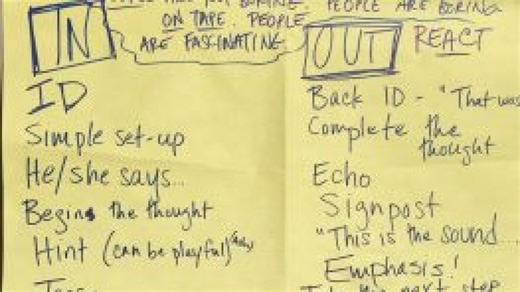 BORING. PEOPLE ARE BORING
ON TAPE. PEOPLE
ARE FASCINATING
IN
ID
Simple set-up
He/she says...
Begins the thought
Hint (can be playful)
OUT REACT
Back ID - "That was
Complete the
thought
Echo
Signpost
"This is the sound...
Emphasis!
next step